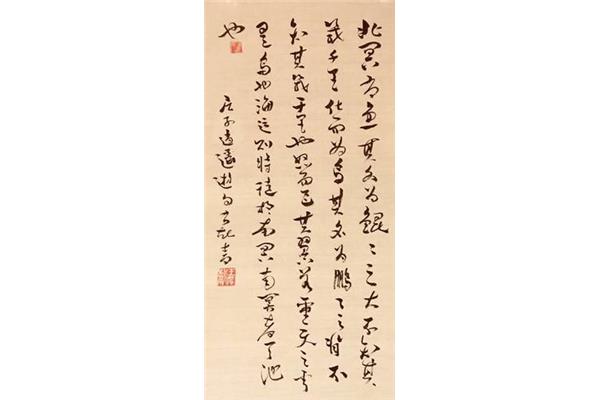 北冥有魚其名为鯤〻之大不知其
幾千里化而为鳥其名为鵬〻之背不
知其幾千里也怒而飛其翼若垂天之雲
是鳥也海运则將徙於南冥南冥者天池
也
庄子逍遥遊句